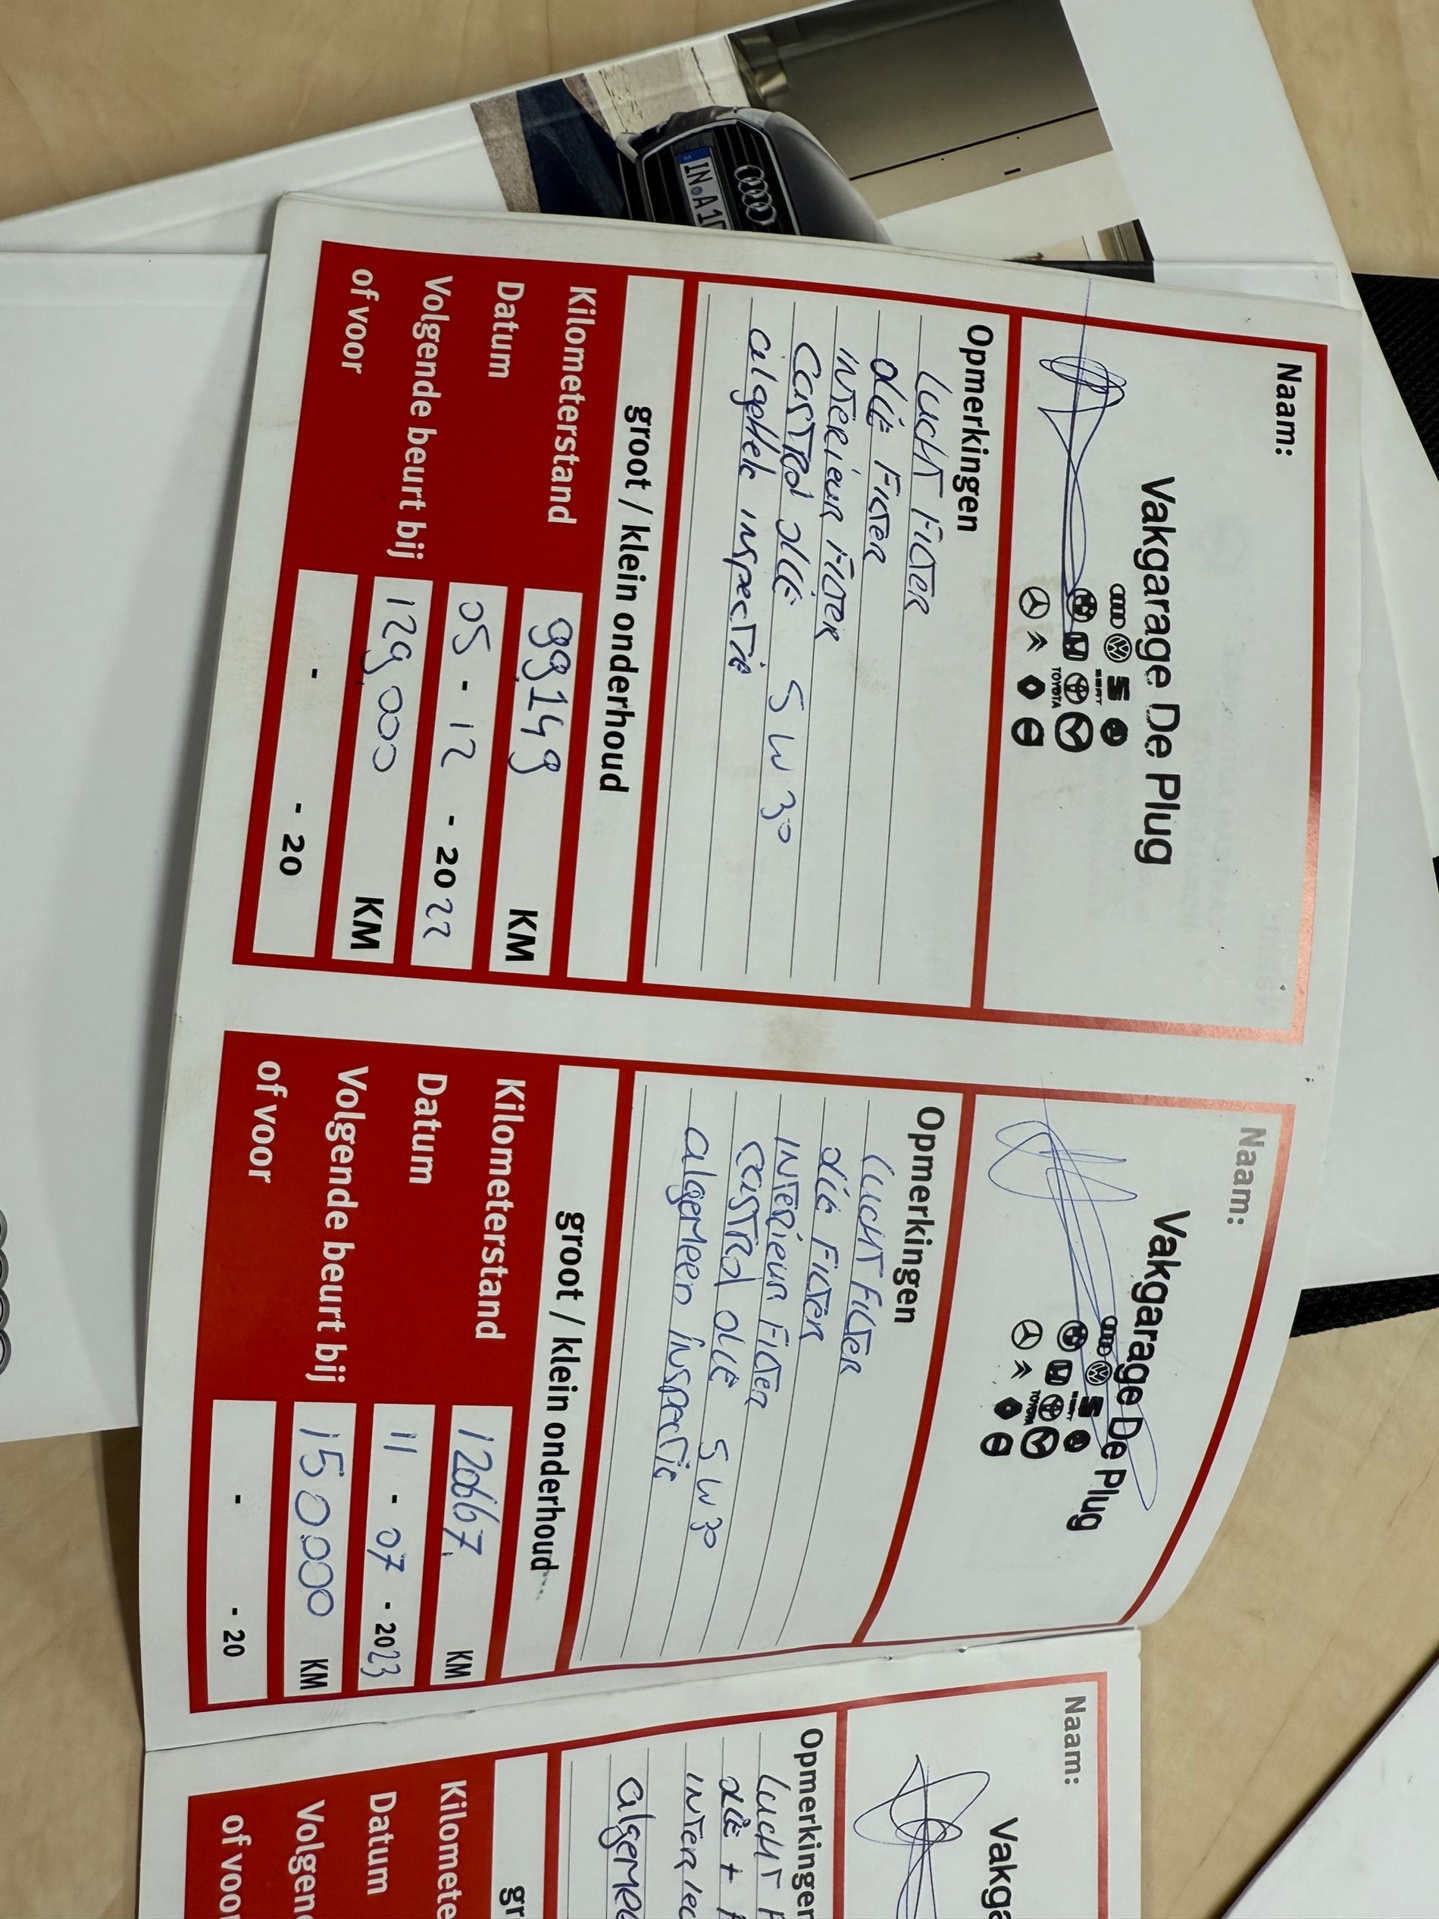 IN·A10
Naam:
Vakgarage De Plug
SEAT
TOYOTA
Opmerkingen
Lucht Filter
olie Filter
interieur Filter
Castrol olie 5W30
algehele inspectie
groot / klein onderhoud
Kilometerstand 99.149 KM
Datum 05 - 12 - 2022
Volgende beurt bij 129.000 KM
of voor - - 20
Naam:
Vakgarage De Plug
SEAT
TOYOTA
Opmerkingen
Lucht Filter
olie Filter
interieur Filter
castrol olie 5W30
algemeen inspectie
groot / klein onderhoud
Kilometerstand KM
Datum 11 - 07 - 2023
Volgende beurt bij 150000 KM
of voor - - 20
Naam:
Vakga
Opmerkingen
Lucht F
olie + F
algemee
gr
Kilomete
Datum
Volgen
of voor